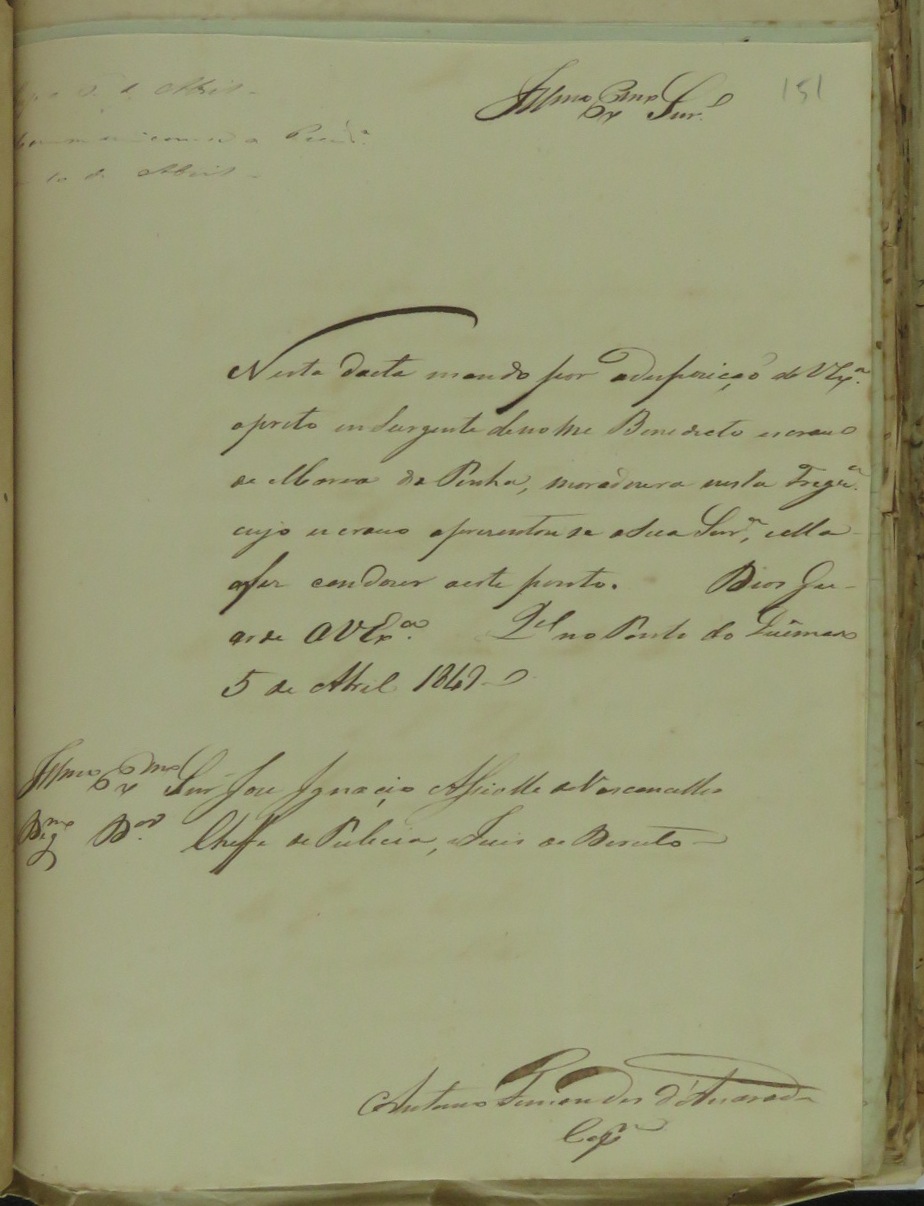 5 de Abril
de Abril
Illmo Exmo Snr.
151
Nesta dacta mando por a disposiçaõ de VExª.
o preto insurgente de nome Benedicto escravo
de Maria da Penha, moradoura nesta Fregª.
cujo escravo aprezentouse a sua Snrª, e ella
o fez conduzir a este ponto. Deos Gu-
arde a VExª. Qel no Ponto do Queimado
5 de Abril 1849
Illmo Exmo Snr José Ignacio Assiolle de Vasconcellos
Digmo Dor. Cheffe de Pulicia, e Juis de Direito
Antonio Fernandes d'Andrade
Capm